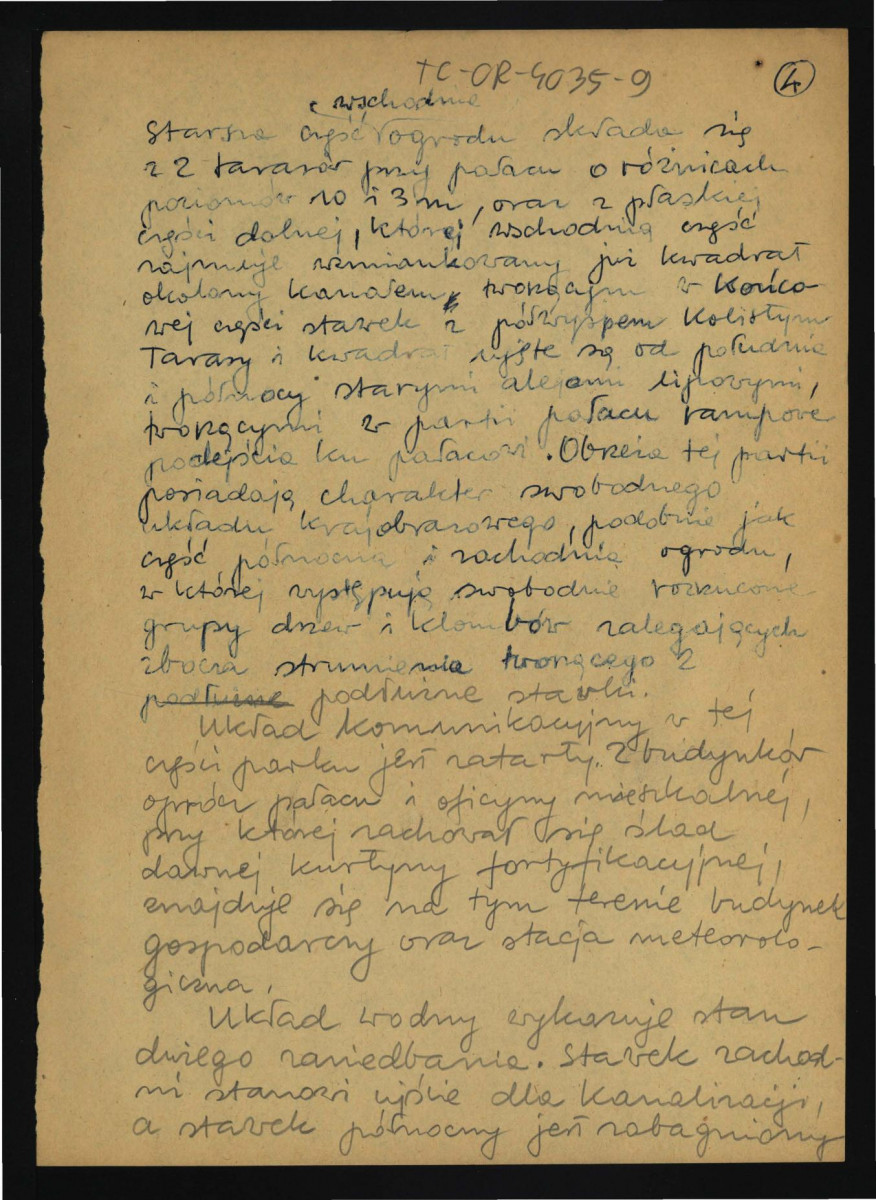 TC-OR-4035-9
4
wschodnia
Starsza część ogrodu składa się
z 2 tarasów przy pałacu o różnicach
poziomów 10 i 3 m, oraz z płaskiej
części dolnej, której wschodnią część
zajmuje wzmiankowany już kwadrat
okolony kanałem, tworzącym w końco-
wej części stawek z półwyspem kolistym
Tarasy i kwadrat ujęte są od południa
i północy starymi alejami lipowymi,
tworzącymi w partii pałacu rampowe
podejścia ku pałacowi. Obrzeża tej partii
posiadają charakter swobodnego
układu krajobrazowego, podobnie jak
część północna i zachodnia ogrodu,
w której występują swobodnie rozrzucone
grupy drzew i klombów zalegających
zbocza strumienia tworzącego 2
podłużne podłużne stawki.
Układ komunikacyjny w tej
części parku jest zatarty. Z budynków
oprócz pałacu i oficyny mieszkalnej,
przy której zachował się ślad
dawnej kurtyny fortyfikacyjnej,
znajduje się na tym terenie budynek
gospodarczy oraz stacja meteorolo-
giczna.
Układ wodny wykazuje stan
dużego zaniedbania. Stawek zachod-
ni stanowi ujście dla kanalizacji,
a stawek północny jest zabagniony